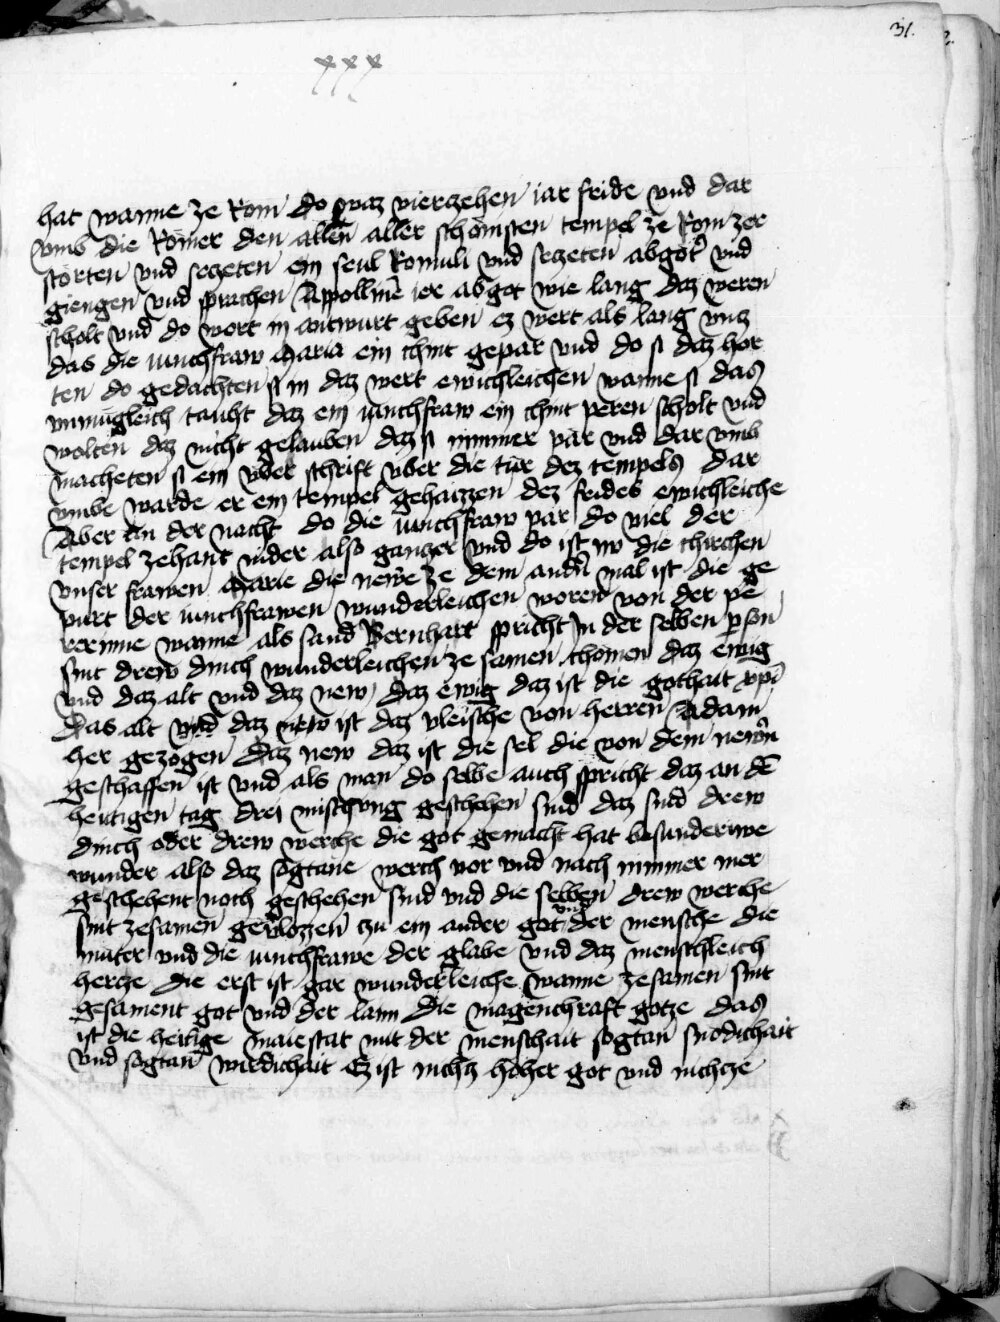 31.
xxx
hat wanne ze Rom do waz vierzehen iar fride vnd dar
vmb die Römer den allen aller schönisten tempel ze Rom zer
storten vnd seczeten ein seul Romuli vnd seczeten abgöt᷑ vnd
giengen vnd sprachen Appollinē irr abgot wie lang daz weren
scholt vnd do wort in antwurt geben ez wert als lang vncz
das die iunchfraw Maria ein chint gepar vnd do si daz hor
ten do gedachten si in daz wert ewichleichen wanne si das
vnmügleich taucht daz ein iunchfraw ein chint peren scholt vnd
wolten daz nicht gelauben daz si nimmer pär vnd dar vmb
macheten si ein vber schrift vber die tür dez tempels dar
vmbe warde er ein tempel gehaizzen dez frides ewichleiche
Aber in der nacht do die iunchfraw par do viel der
tempel zehant nider also ganczer vnd do ist nw die chirchen
vnser frawen Marie die newe ze dem andn̄ mal ist die ge
purt der iunchfrawen wunderleichen worden von der pe
rerinne wanne als sand Bernhart spricht in der selben ꝑson
sint drew dinch wunderleichen ze samen chomen daz ewig
vnd daz alt vnd daz new daz ewig daz ist die gothait xpī
das alt vnd daz new ist daz vleische von herren Adam
her gezogen daz new daz ist die sel die von dem newn̄
geschaffen ist vnd als man do selbe auch spricht daz an dē
heutigen tag drei mischung geschehen sind daz sind drew
dinch oder drew werche die got gemacht hat besunder we
wunder also daz sogtane werch vor vnd nach nimmer mer
geschehent noch geschehen sind vnd die selben drew werche
sint zesamen gevlozzen zu ein ander got vnd der mensche die
muter vnd die iunchfrawe der glabe vnd daz menschleich
hercze die erst ist gar wunderleiche wanne zesamen sint
gesament got vnd der laim die magenchraft gotze das
ist die heilige maiestat mit der menschait sogtan snödichait
vnd sogtan wirdichait Ez ist nichtz höher got vnd nichcze